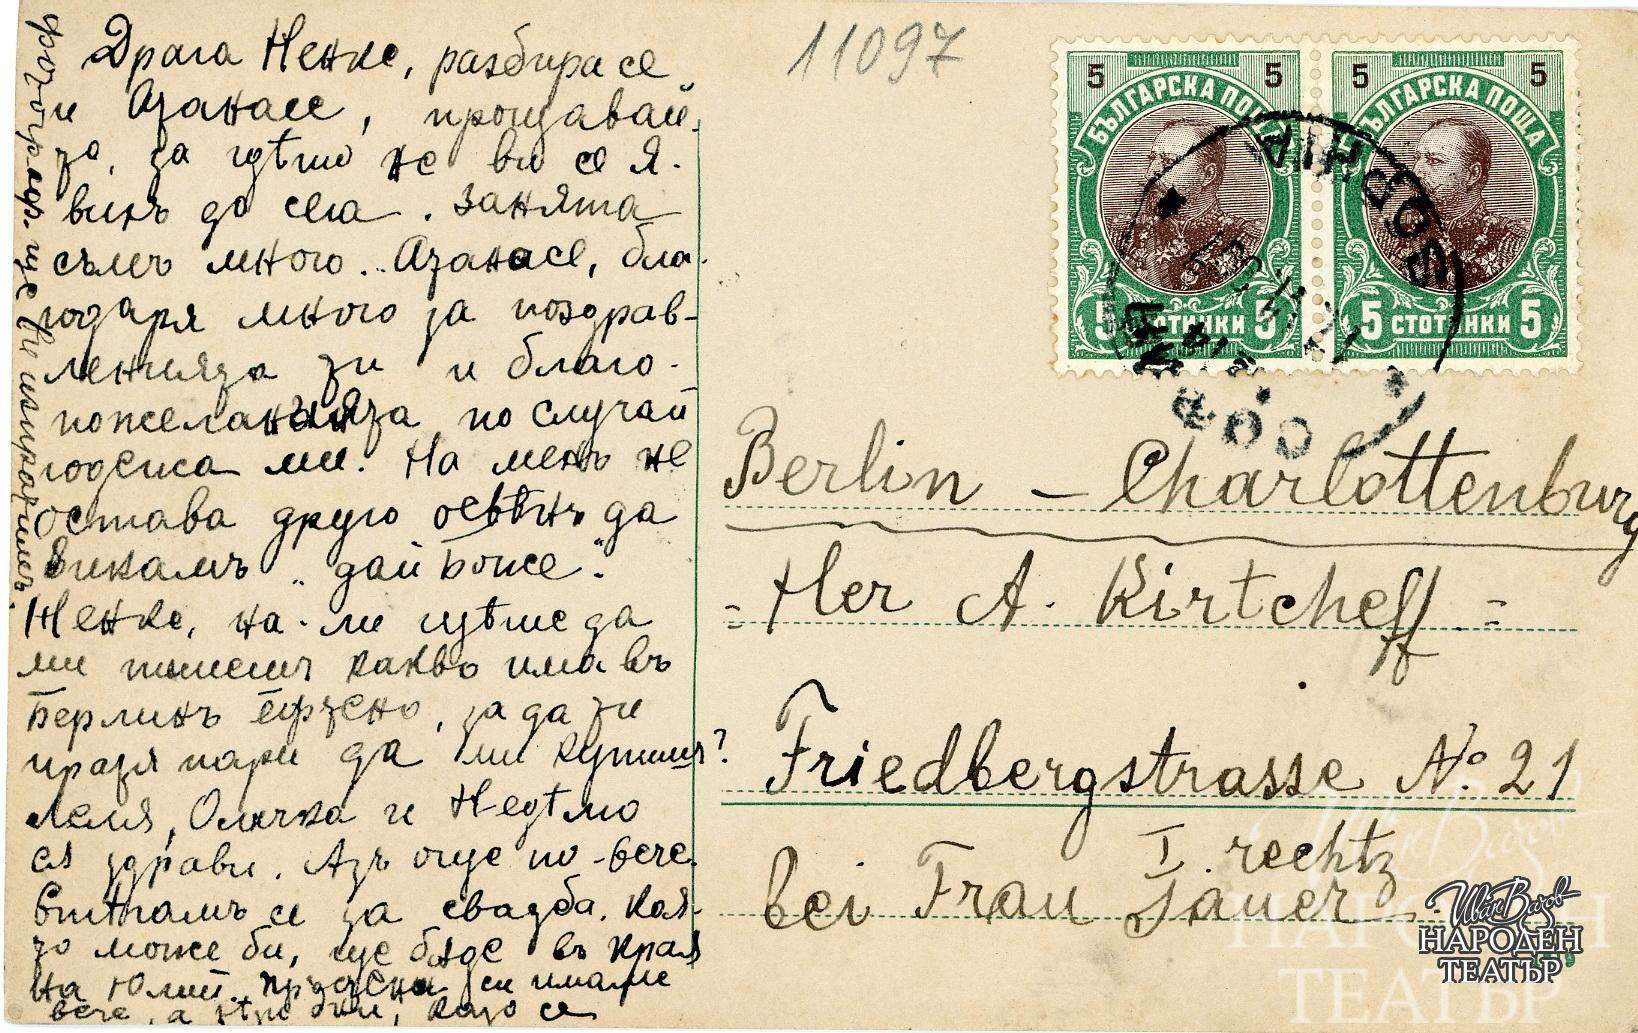 11097
Драга Ненке, разбира се
и Атанасе, прощавай-
те, за гдѣто не ви се я-
вихъ до сега. Занята
съмъ много. Атанасе, бла-
годаря много за поздрав-
ленията ти и благо-
пожеланията по случай
годежа ми. На менъ не
остава друго освѣнъ да
викамъ „дай Боже“.
Ненке, на-ли щѣше да
ми пишешъ какво има въ
Берлинъ ефтено, за да ти
пратя пари да ми купишъ?
Леля, Оличка и Недѣлю
са здрави. Азъ още по-вече
се за свадба. Коя-
то може би, ще бѫде въ края
на Юлий. си имате
вече, а
фотограф. ще Ви изпратимъ.
5 5
БЪЛГАРСКА ПОЩА
5 СТОТИНКИ 5
5 5
БЪЛГАРСКА ПОЩА
5 СТОТИНКИ 5
СОФИЯ
Berlin – Charlottenburg
= Her A. Kirtcheff =
Friedbergstrasse No. 21
I. rechtz
bei Frau Sauer.
Иван Вазов
НАРОДЕН
ТЕАТЪР